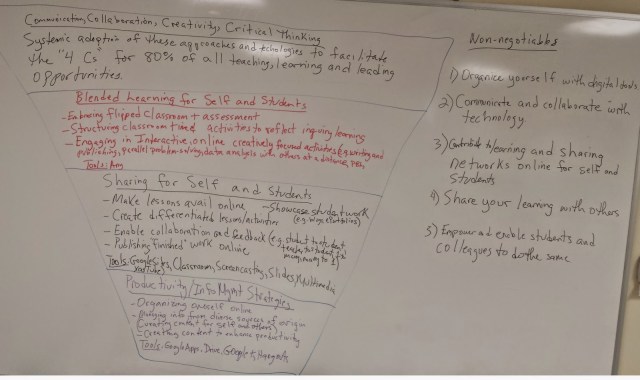 Communication, Collaboration, Creativity, Critical Thinking
Systemic adoption of these approaches and technologies to facilitate
the "4 Cs" for 80% of all teaching, learning and leading
opportunities.
Blended Learning for Self and Students
- Embracing flipped classroom + assessment
- Structuring classroom time & activities to reflect inquiry learning
- Engaging in Interactive, online creatively focused activities (e.g. writing and
publishing, parallel problem-solving, data analysis with others at a distance,
Tools: Any
Sharing for Self and Students
- Make lessons avail online
- Showcase student work
(e.g. wikis
- Create differentiated lessons/activities
- Enable collaboration and feedback (e.g. student to student,
teacher to student,
many, many to 1)
- Publishing "finished" work online
Tools: Google Sites, Classroom, Screencasting, Slides, Multimedia
YouTube)
Productivity/Info Mgmt Strategies
- Organizing oneself online
- Merging info from diverse sources of origin
(creating content for self and others)
- Creating content to enhance productivity
Tools: Google Apps, Drive, Google
Non-negotiables
1) Organize yourself with digital tools
2) Communicate and collaborate with
technology
3) Contribute to learning and sharing
networks online for self and
students
4) Share your learning with others
5) Empower and enable students and
colleagues to do the same